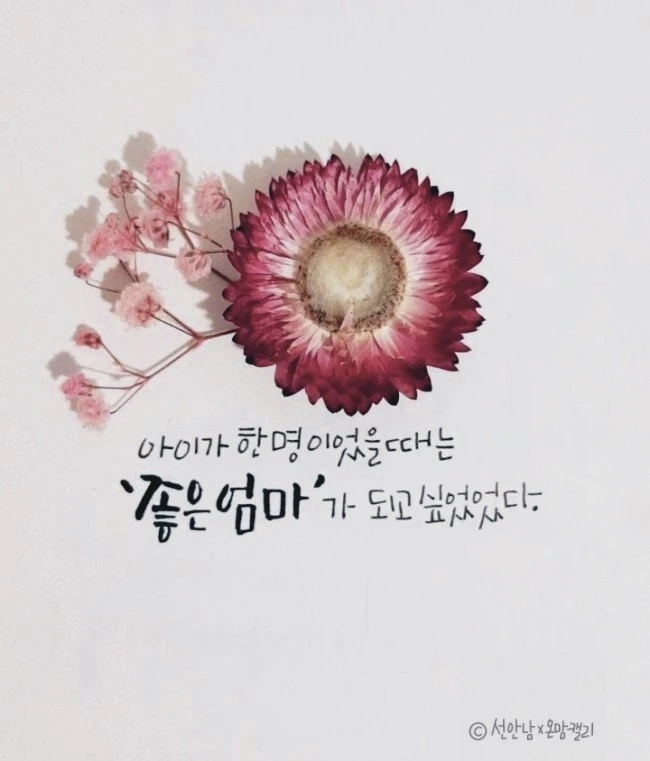 아이가 한명이었을때는
'좋은엄마'가 되고싶었었다.
© 선안남x온맘캘리